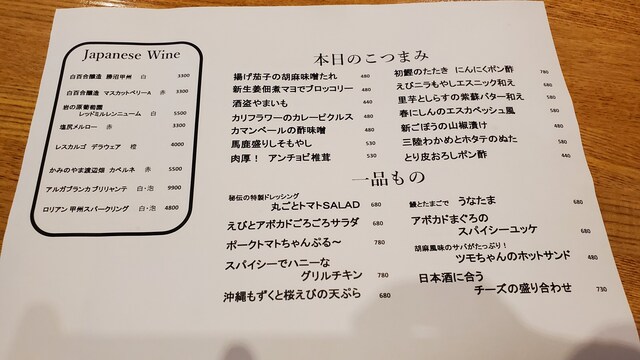 Japanese Wine
白百合醸造 勝沼甲州 白 3300
白百合醸造 マスカットベリーA 赤 3300
岩の原葡萄園
レッドミルレンニューム 白 5500
塩尻メルロー 赤 3300
レスカルゴ デラウェア 橙 4000
かみのやま渡辺畑 カベルネ 赤 5500
アルガブランカ ブリリャンテ 白・泡 9900
ロリアン 甲州スパークリング 白・泡 4800
本日のこつまみ
揚げ茄子の胡麻味噌たれ 480
新生姜佃煮マヨでブロッコリー 480
酒盗やまいも 440
カリフラワーのカレーピクルス 480
カマンベールの酢味噌 480
馬鹿盛りしそもやし 530
肉厚! アンチョビ椎茸 530
初鰹のたたき にんにくポン酢 780
えびニラもやしエスニック和え 680
里芋としらすの紫蘇バター和え 580
春にしんのエスカベッシュ風 580
新ごぼうの山椒漬け 480
三陸わかめとホタテのぬた 580
とり皮おろしポン酢 440
一品もの
秘伝の特製ドレッシング
丸ごとトマトSALAD 680
えびとアボカドごろごろサラダ 680
ポークトマトちゃんぷる〜 780
スパイシーでハニーな
グリルチキン 780
沖縄もずくと桜えびの天ぷら 680
鰻とたまごで うなたま 680
アボカドまぐろの
スパイシーユッケ 680
胡麻風味のサバがたっぷり!
ツモちゃんのホットサンド 480
日本酒に合う
チーズの盛り合わせ 730